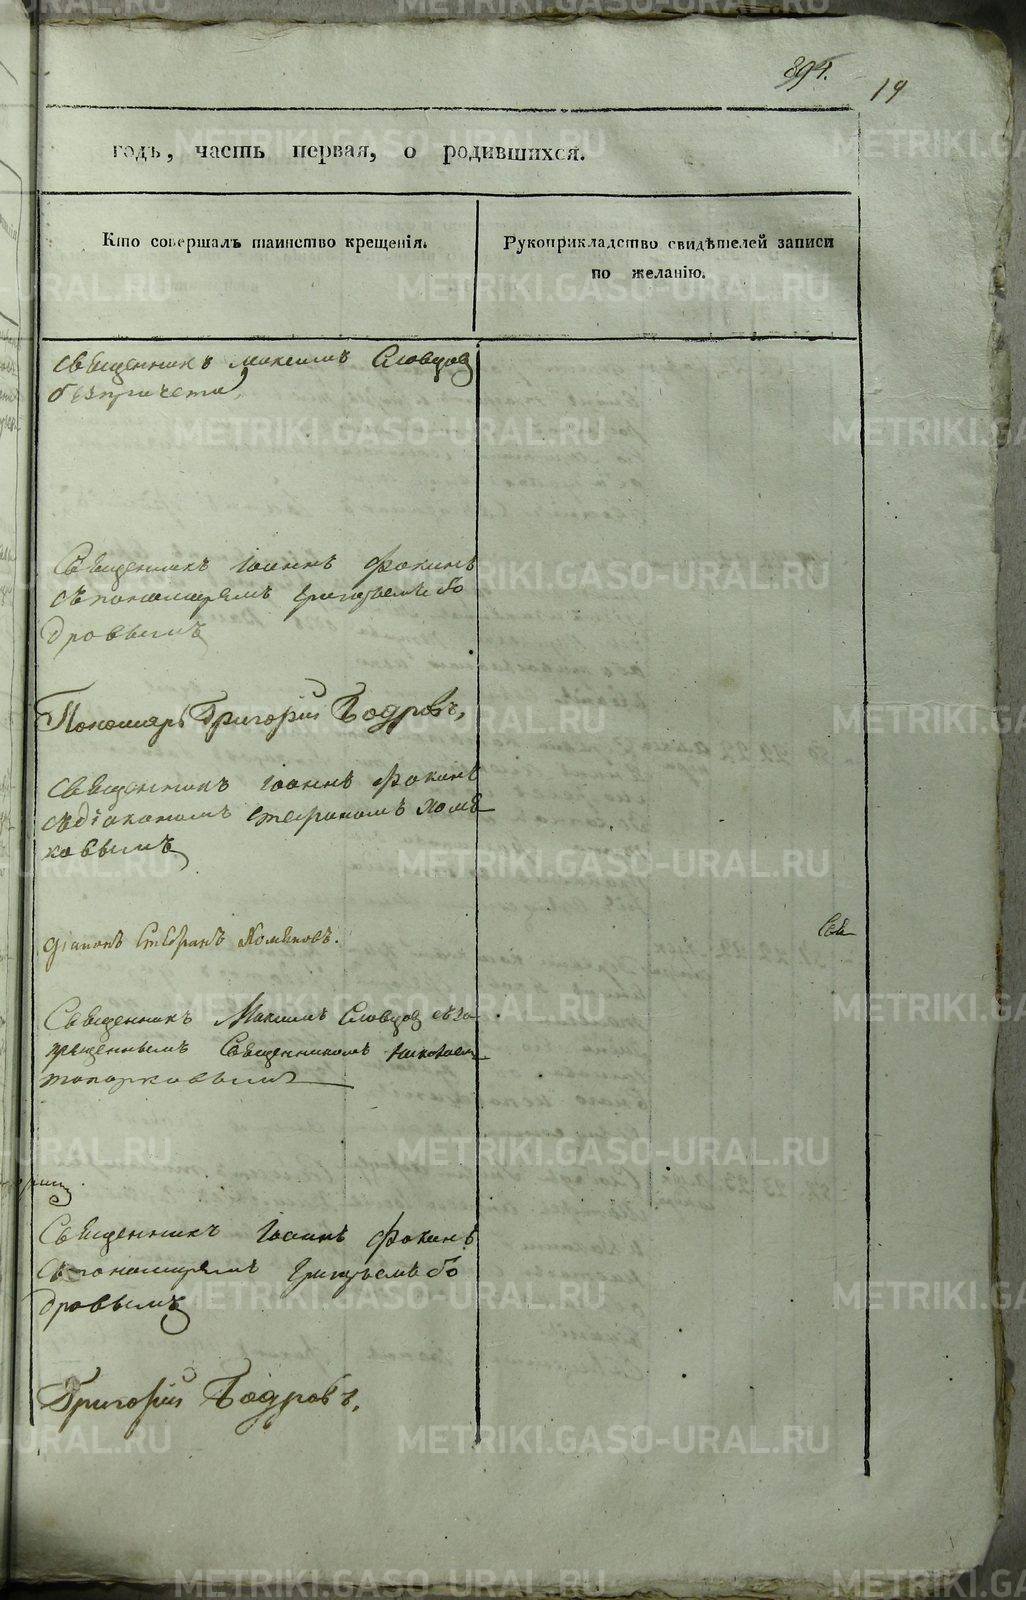 894.
19
годъ, часть первая, о родившихся.
Кто совершалъ таинство крещенія.
Рукоприкладство свидѣтелей записи
по желанію.
Священникъ Максимъ Словцов
безпричета,
Священникъ Іоаннъ Фокинъ
съ пономаремъ Григорьемъ Бо
дровымъ
Пономарь Григорій Бодровъ,
Священникъ Іоаннъ Фокинъ
съ діакономъ Стефаномъ Хомя
ковымъ
Діаконъ Стефанъ Хомяковъ.
Священникъ Максимъ Словцов съ за
прещеннымъ Священникомъ Николаем
топорковымъ
Священникъ Іоаннъ Фокинъ
съ пономаремъ Григорьемъ Бо
дровымъ
Григорій Бодровъ,
METRIKI.GASO-URAL.RU